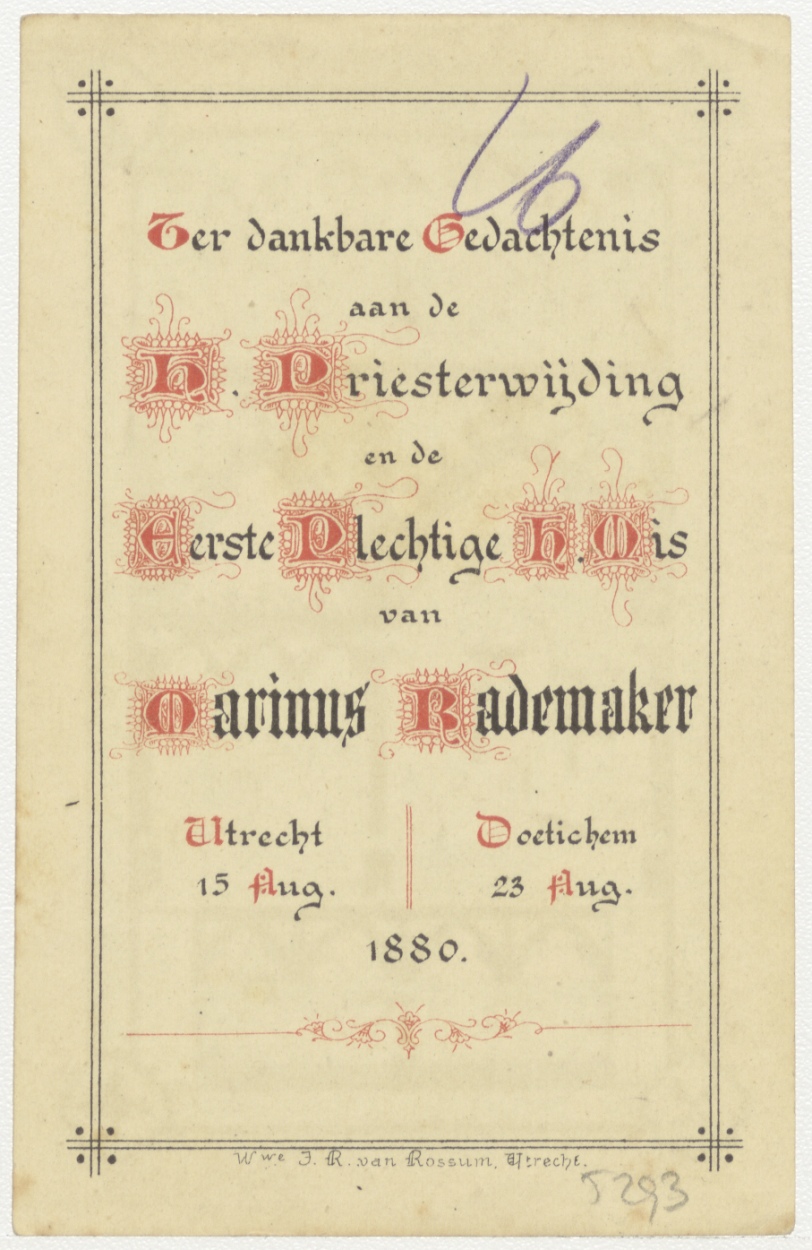 Ter dankbare Gedachtenis
aan de
H. Priesterwijding
en de
Eerste Plechtige H. Mis
van
Marinus Rademaker
Utrecht
15 Aug.
Doetichem
23 Aug.
1880.
Wwe J. R. van Rossum, Utrecht.
5293